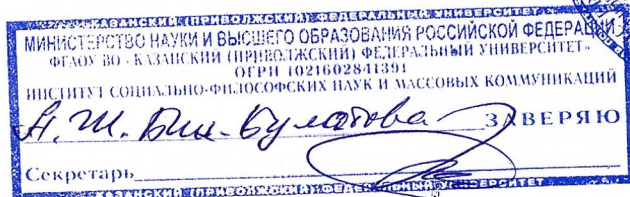 КАЗАНСКИЙ (ПРИВОЛЖСКИЙ) ФЕДЕРАЛЬНЫЙ УНИВЕРСИТЕТ
МИНИСТЕРСТВО НАУКИ И ВЫСШЕГО ОБРАЗОВАНИЯ РОССИЙСКОЙ ФЕДЕРАЦИИ
ФГАОУ ВО "КАЗАНСКИЙ (ПРИВОЛЖСКИЙ) ФЕДЕРАЛЬНЫЙ УНИВЕРСИТЕТ"
ОГРН 1021602841391
ИНСТИТУТ СОЦИАЛЬНО-ФИЛОСОФСКИХ НАУК И МАССОВЫХ КОММУНИКАЦИЙ
ЗАВЕРЯЮ
Секретарь
КАЗАНСКИЙ (ПРИВОЛЖСКИЙ) ФЕДЕРАЛЬНЫЙ УНИВЕРСИТЕТ